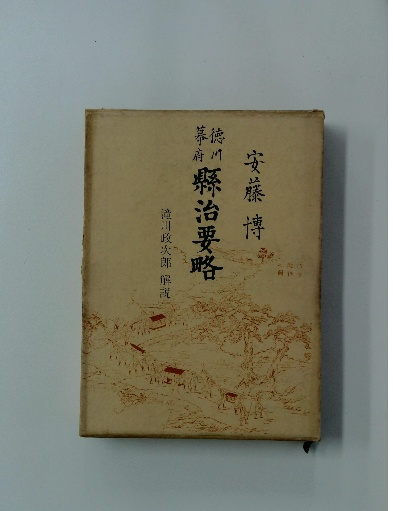 安藤 博
徳川
幕府
縣治要略
瀧川政次郎 解説